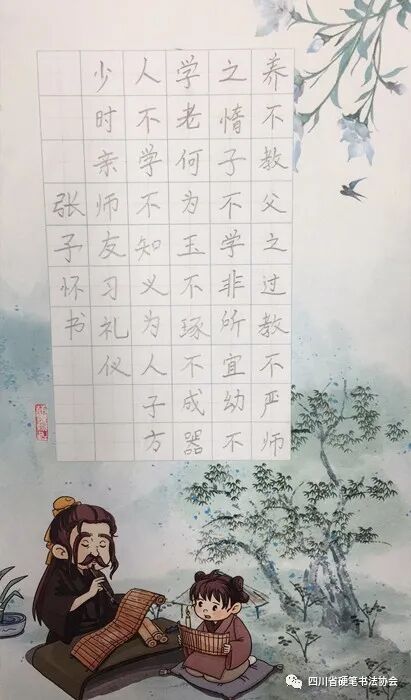 养不教父之过教不严师
之惰子不学非所宜幼不
学老何为玉不琢不成器
人不学不知义为人子方
少时亲师友习礼仪
张子怀书
四川省硬笔书法协会